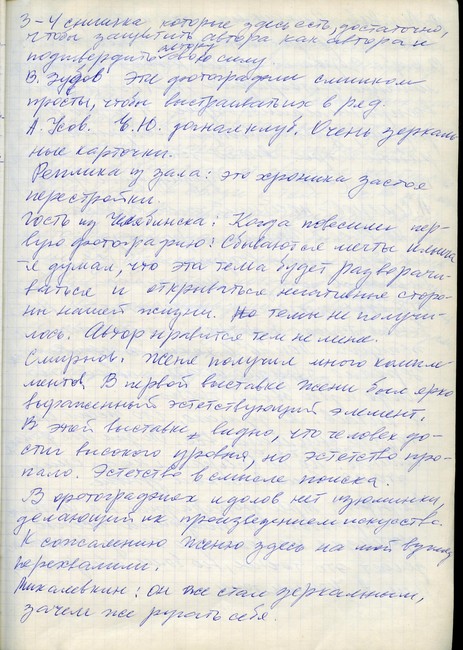 3-4 снимка которые здесь есть, достаточно,
чтобы защитить автора как автора и
подтвердить свою силу.
В. Зудов Эти фотографии слишком
просты, чтобы выстраивать их в ряд.
А. Усов. Е.Ю. доналклуб. Очень зеркаль-
ные карточки.
Реплика из зала: это хроника застоя
перестройки.
Гость из Челябинска: Когда повесили пер-
вую фотографию: Сбываются мечты Ильича
-я думал, что эта тема будет разворачи-
ваться и открываться негативные сторо-
ны нашей жизни. Но темы не получи-
лось. Автор нравится тем не менее.
Смирнов. Женя получил много компли-
ментов. В первой выставке Жени был ярко
выраженный эстетствующий элемент.
В этой выставке видно, что человек до-
стиг высокого уровня, но эстетство про-
пало. Эстетство в смысле поиска.
В фотографиях идолов нет изюминки,
делающий их произведением искусства.
К сожалению Женю здесь на мой взгляд
перехвалили.
Михалевкин: он же стал зеркальным,
зачем же ругать себя.